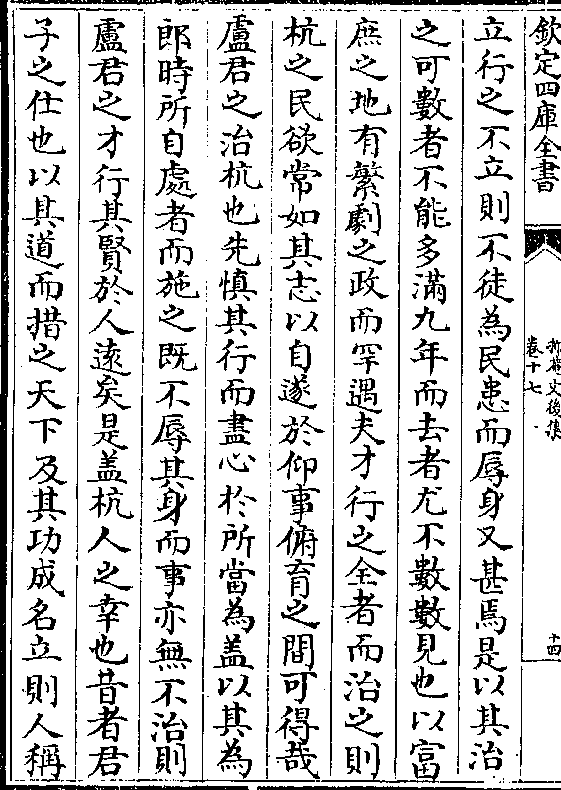 欽定四庫全書
新安文獻志
卷十七
十四
立行之不立則不徒為民患而辱身又甚焉是以其治
之可數者不能多滿九年而去者尤不數數見也以富
庶之地有繁劇之政而罕遇夫才行之全者而治之則
杭之民欲常如其志以自遂於仰事俯育之間可得哉
盧君之治杭也先慎其行而盡心於所當為盖以其為
郎時所自處者而施之既不辱其身而事亦無不治則
盧君之才行其賢於人遠矣是盖杭人之幸也昔者君
子之仕也以其道而措之天下及其功成名立則人稱